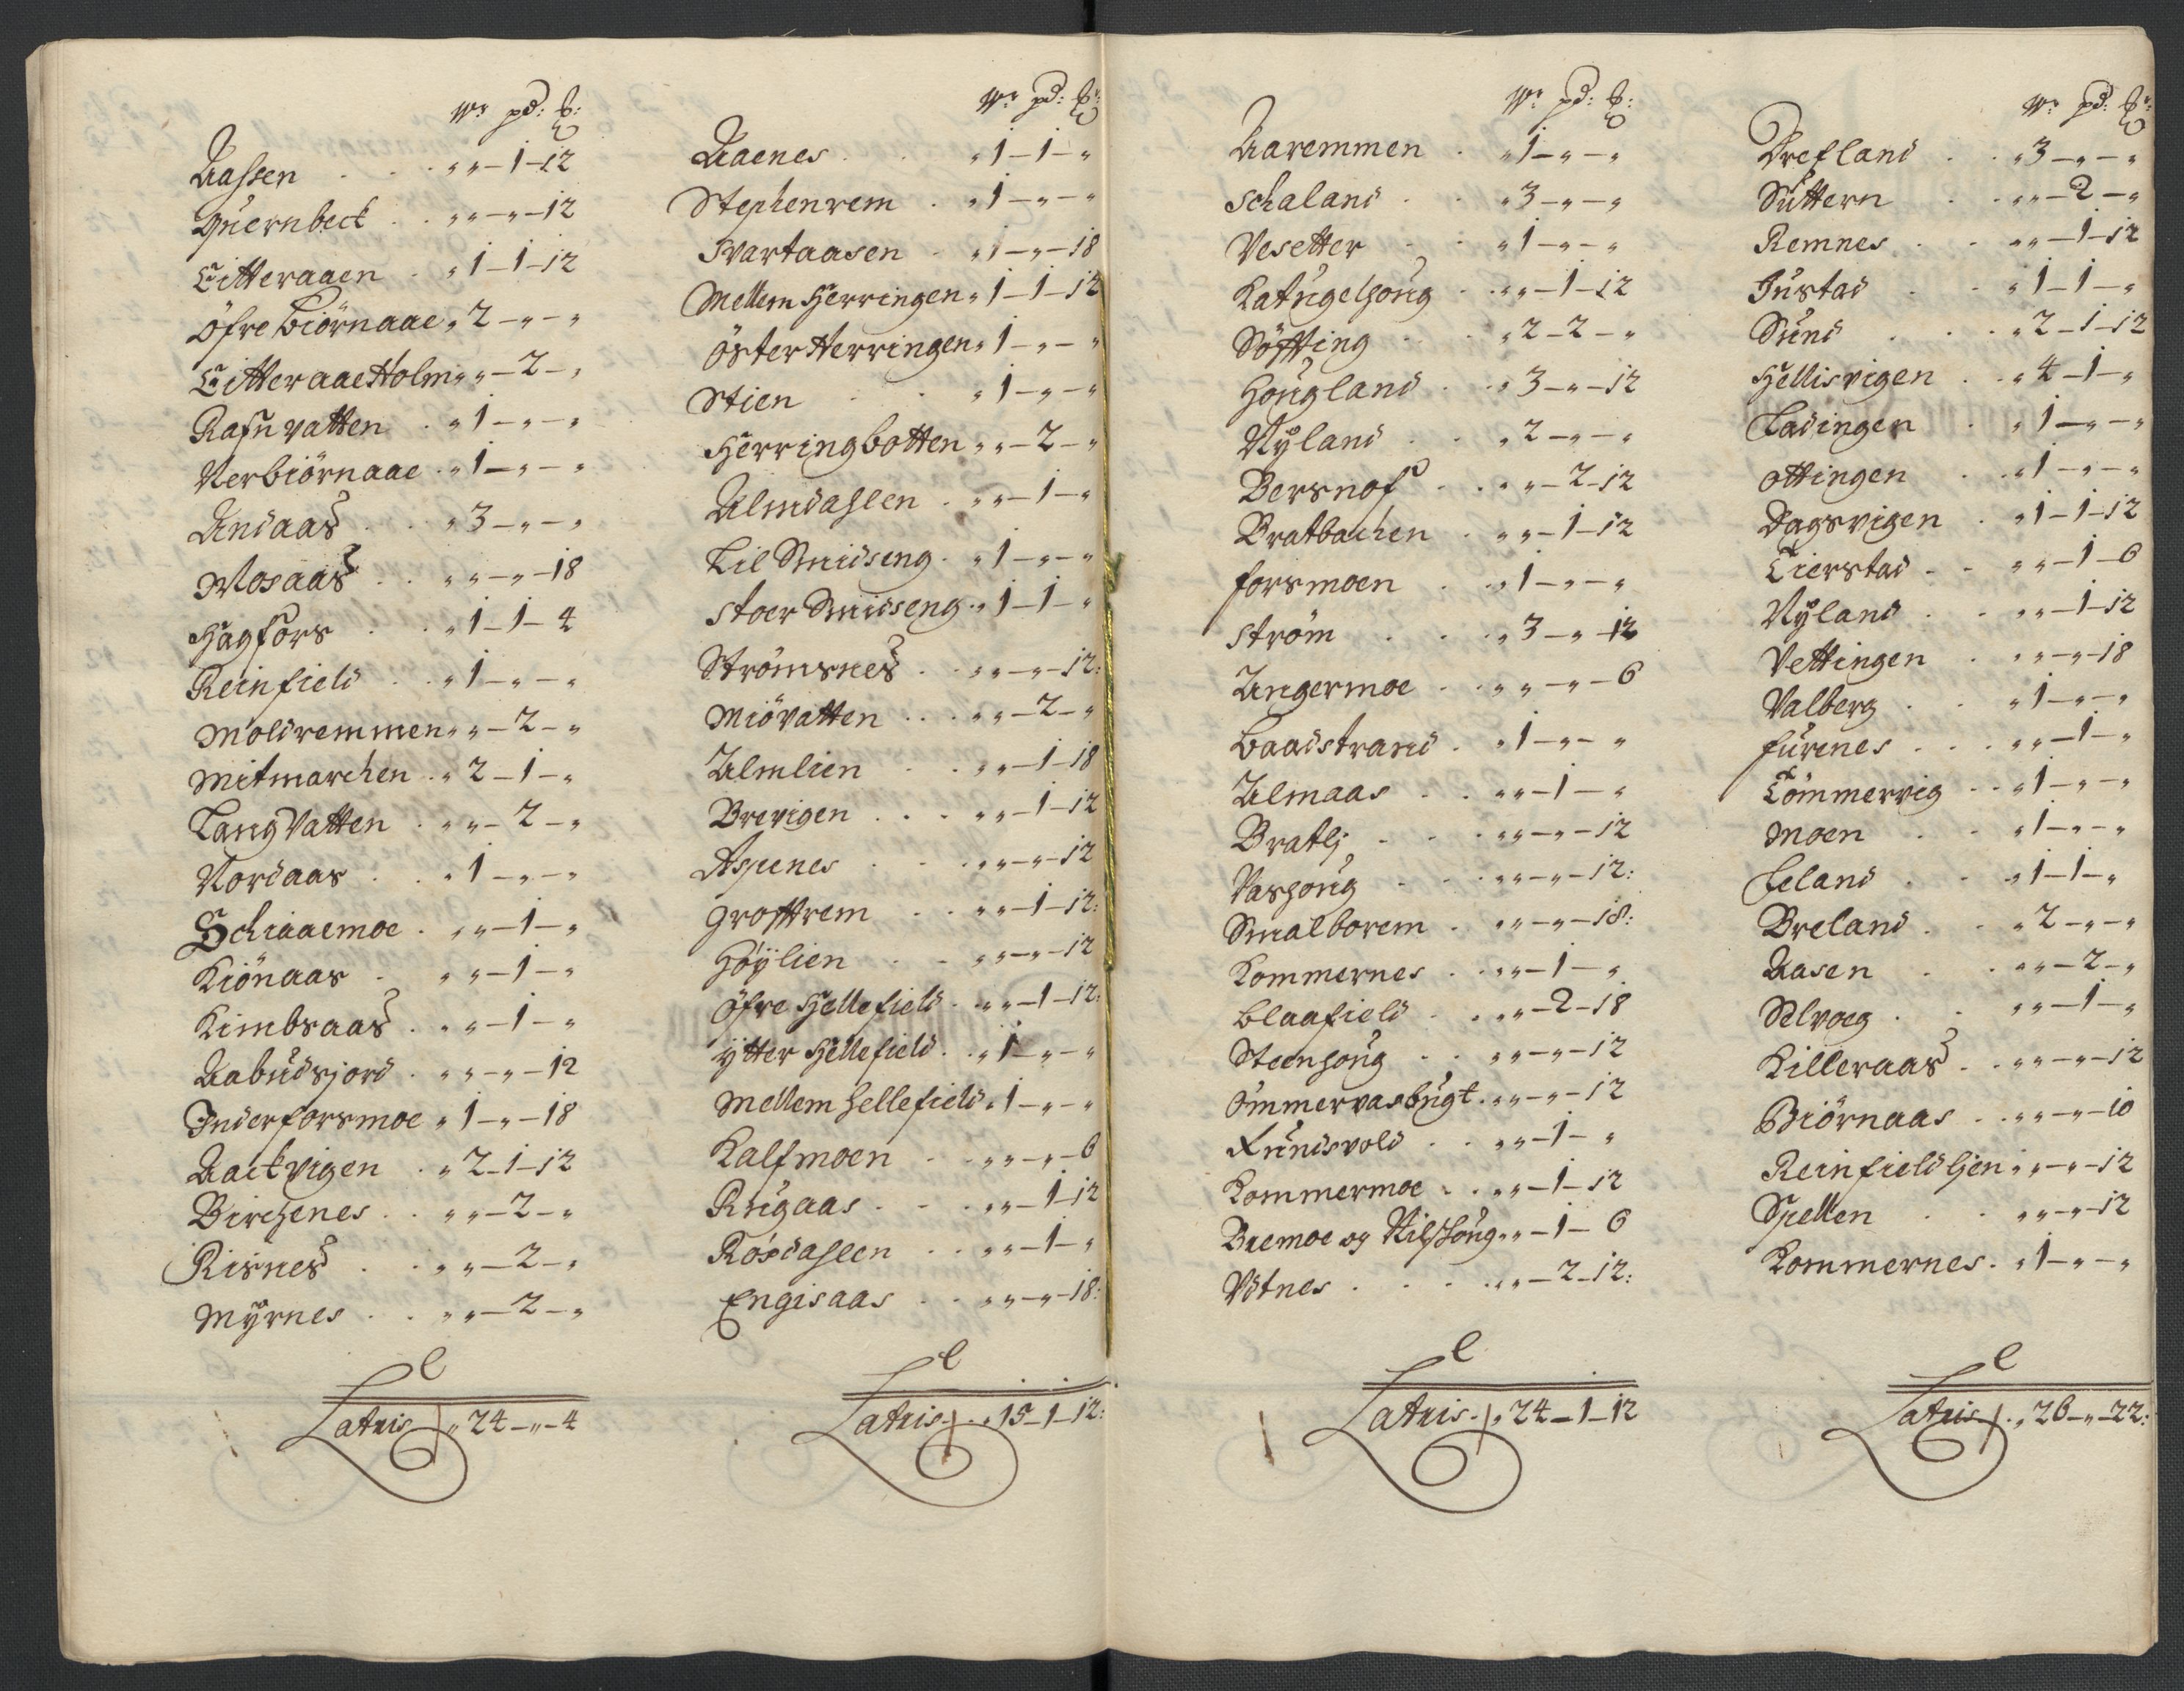 Wr pd: ℔:
Aassen . . . „ „ – 1 – 12
Quernbeck . . „ „ – „ – 12
Litteraaen . „ 1 – 1 – 12
Öfre Biörnaae „ 2 – „ – „
Litteraae Holm „ „ – 2 – „
Rafnvatten . „ 1 – „ – „
Nerbiörnaae . „ 1 – „ – „
Andaas . . „ 3 – „ – „
Mosaas . . „ „ – „ – 18
Hagfors . . „ 1 – 1 – 4
Reinfield . . „ 1 – „ – „
Moldremmen „ „ – 2 – „
Mitmarchen . „ 2 – 1 – „
Lang Vatten . „ „ – 2 – „
Nordaas . . „ 1 – „ – „
Schiaaemoe . „ „ – 1 – „
Kiönaas . „ „ – 1 – „
Kimbsaas . „ „ – 1 – „
Aabudsjord . „ „ – „ – 12
Inderforsmoe „ 1 – „ – 18
Aackvigen . „ 2 – 1 – 12
Birchenes . . „ „ – 2 – „
Risnes . . „ „ – 2 – „
Myrnes . . „ „ – 2 – „
Latris „ 24 – „ – 4
Wr pd: ℔:
Aaenes . . „ 1 – 1 – „
Stephenrem . „ 1 – „ – „
Svartaasen . „ 1 – „ – 18
Mellem Herringen „ 1 – 1 – 12
Öster Herringen „ 1 – „ – „
Stien . . „ 1 – „ – „
Herringbotten „ „ – 2 – „
Almdahlen . „ „ – 1 – „
Lil Smidseng . „ 1 – „ – „
Stoer Smidseng . „ 1 – 1 – „
Strömsnes . . „ „ – „ – 12:
Miövatten . . . „ „ – 2 – „
Almlien . . „ „ – 1 – 18
Brevigen . . . „ „ – 1 – 12
Aspenes . . . „ „ – „ – 12
Grofttrem . . „ „ – 1 – 12:
Höylien . . „ „ – „ – 12
Öfre Hellefield . „ „ – 1 – 12:
Ytter Hellefield . „ 1 – „ – „
Mellem Hellefield „ 1 – „ – „
Kalfmoen . . „ „ – „ – 6
Rugaas . . . „ „ – 1 – 12
Rösdahlen . . „ „ – 1 – „
Engisaas . . „ „ – „ – 18:
Latris . „ 15 – 1 – 12:
Wr pd: ℔:
Aaremmen . „ 1 – „ – „
Schaland . . „ 3 – „ – „
Vesetter . . „ 1 – „ – „
Katugelhoug . „ „ – 1 – 12
Söffting . . „ 2 – 2 – „
Hougland . . „ 3 – „ – 12
Nyland . . „ 2 – „ – „
Bersnof . . „ „ – 2 – 12
Bratbachen . „ „ – 1 – 12
Forsmoen . . „ 1 – „ – „
Ström . . . „ 3 – „ – 12
Angermoe . . „ „ – „ – 6
Baadstrand . „ 1 – „ – „
Almaas . . „ „ – 1 – „
Bratlj . . . „ „ – „ – 12
Vashoug . . . „ „ – „ – 12:
Smalborem . „ „ – „ – 18:
Kommernes . . „ „ – 1 – „
Blaafield . . „ „ – 2 – 18
Steenhoug . . „ „ – „ – 12
Ommervasbugt . „ „ – „ – 12
Lundsvold . . „ „ – 1 – „
Kommermoe . . „ „ – 1 – 12
Bremoe og Nilshoug „ „ – 1 – 6
Vitnes . . . . „ „ – 2 – 12:
Latris . „ 24 – 1 – 12
Wr pd: ℔:
Drefland . . „ 3 – „ – „
Suttern . . „ „ – 2 – „
Remnes . . „ „ – 1 – 12
Justad . . „ 1 – 1 – „
Sund . . . „ 2 – 1 – 12
Hellisvigen . . „ 4 – 1 – „
Ladingen . „ 1 – „ – „
Ottingen . . „ 1 – „ – „
Dagsvigen . „ 1 – 1 – 12
Tierstad . . „ „ – 1 – 6
Nyland . . „ „ – 1 – 12
Vettingen . „ „ – „ – 18
Valberg . . „ 1 – „ – „
Furenes . . . „ „ – 1 – „
Tömmervig . . „ 1 – „ – „
Moen . . „ 1 – „ – „
Leland . . „ 1 – 1 – „
Breland . . „ 2 – „ – „
Aasen . . „ „ – 2 – „
Selvoeg . . „ „ – 1 – „
Killeraas . . „ „ – „ – 12
Biörnaas . . „ „ – „ – 10
Reinfieldhien „ „ – „ – 12
Spellen . . „ „ – „ – 12
Kommernes . „ 1 – „ – „
Latris . „ 26 – „ – 22: